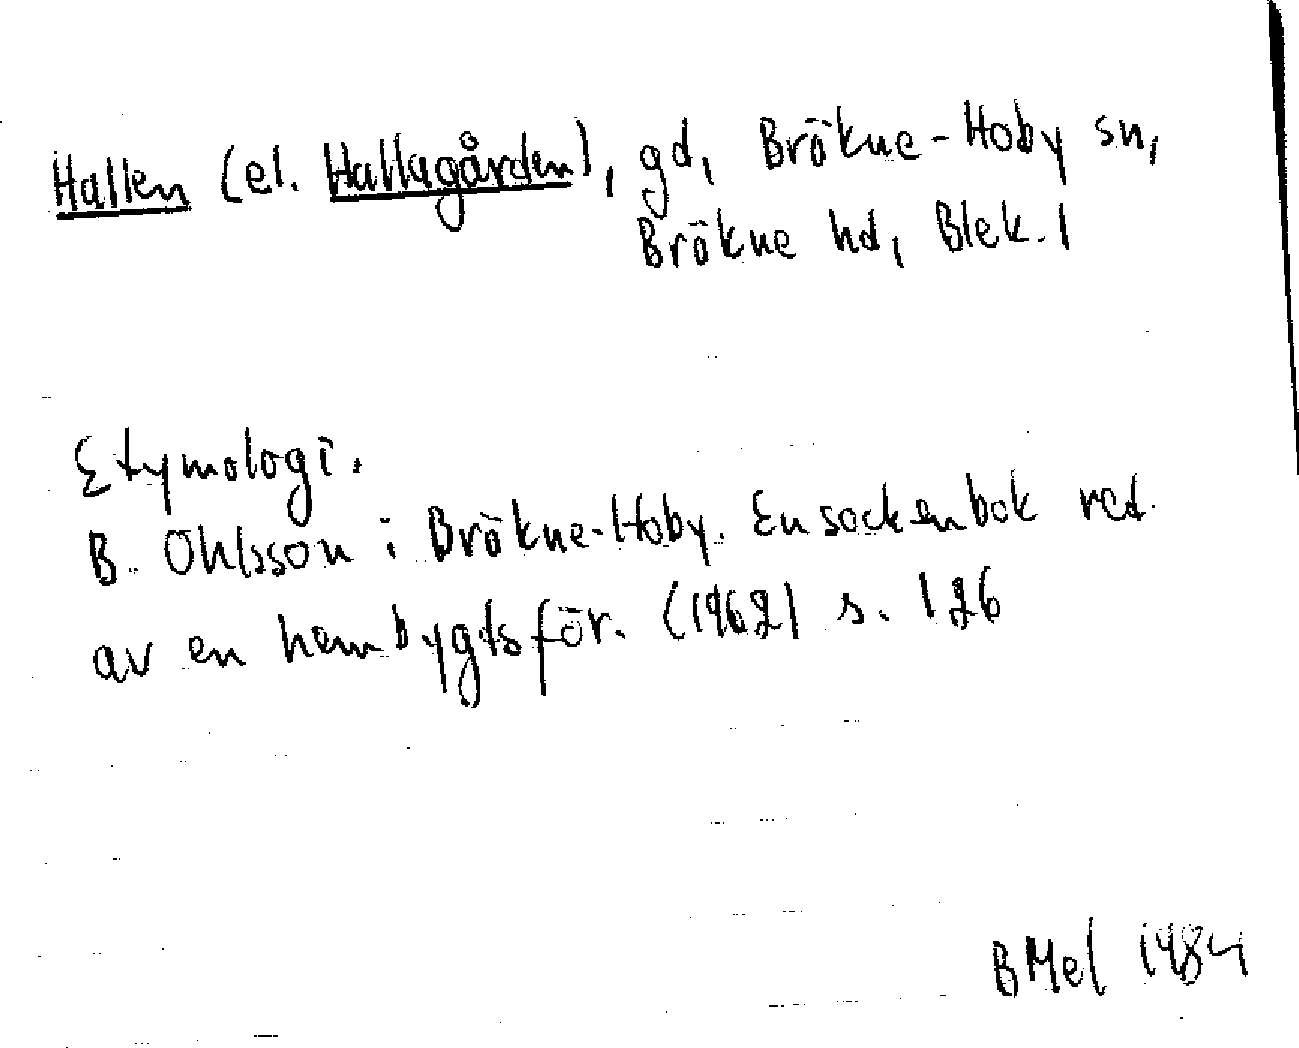 Hallen (el. Hallagården), gd, Bräkne-Hoby sn,
Bräkne hd, Blek. l
Etymologi.
B. Ohlsson i Bräkne-Hoby. En sockenbok red.
av en hembygdsför. (1962) s. 126
BMel 1984